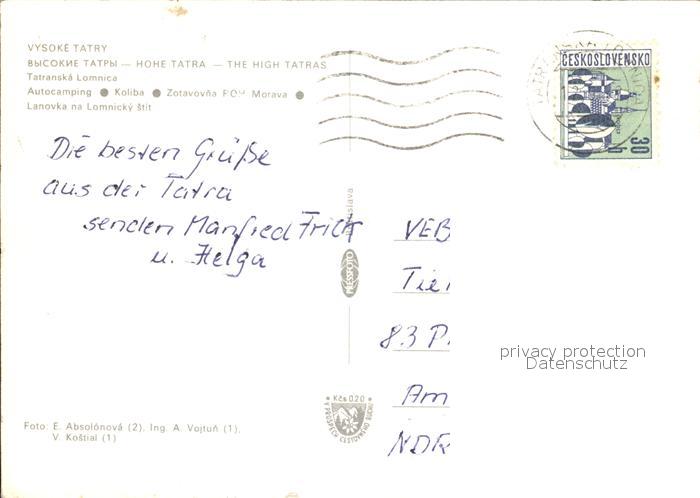 VYSOKÉ TATRY
ВЫСОКИЕ ТАТРЫ — HOHE TATRA — THE HIGH TATRAS
Tatranská Lomnica
Autocamping ● Koliba ● Zotavovňa ROH Morava ●
Lanovka na Lomnický štít
ČESKOSLOVENSKO
30 h
Die besten Grüße
aus der Tatra
senden Manfred Frick
u. Helga
PRESSFOTO
VEB
Tier
83 P.
Am
NDR
privacy protection
Datenschutz
Kčs 0,20
V PROSPECH CESTOVNÉHO RUCHU
Foto: E. Absolónová (2), Ing. A. Vojtuň (1),
V. Koštial (1)